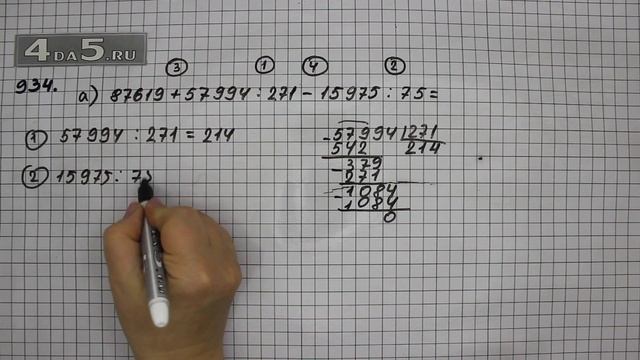 4DA5.RU
3 1 4 2
934. а) 87619 + 57994 : 271 - 15975 : 75 =
1 57994 : 271 = 214
2 15975 : 75
- 57994 271
542 214
- 379
271
- 1084
1084
0